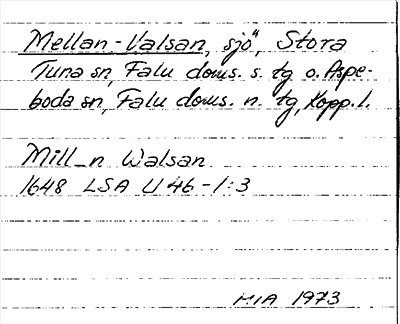 Mellan-Valsan, sjö, Stora
Tuna sn, Falu doms. s. tg o. Aspe-
boda sn, Falu doms. n. tg, Kopp. l.
Mill_n Walsan
1648 LSA U 46-1:3
MIA 1973